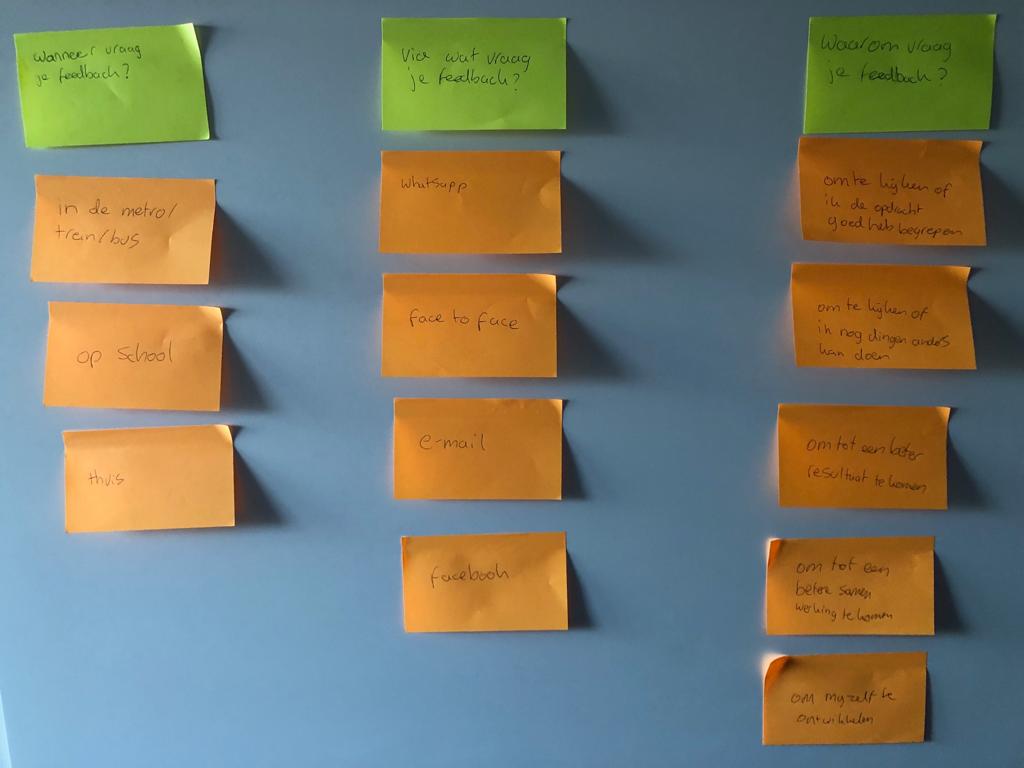 Wanneer vraag
je feedback?
in de metro/
trein/bus
op school
thuis
Via wat vraag
je feedback?
whatsapp
face to face
e-mail
facebook
Waarom vraag
je feedback?
om te kijken of
ik de opdracht
goed heb begrepen
om te kijken of
ik nog dingen anders
kan doen
om tot een beter
resultaat te komen
om tot een
betere samen
werking te komen
om mijzelf te
ontwikkelen